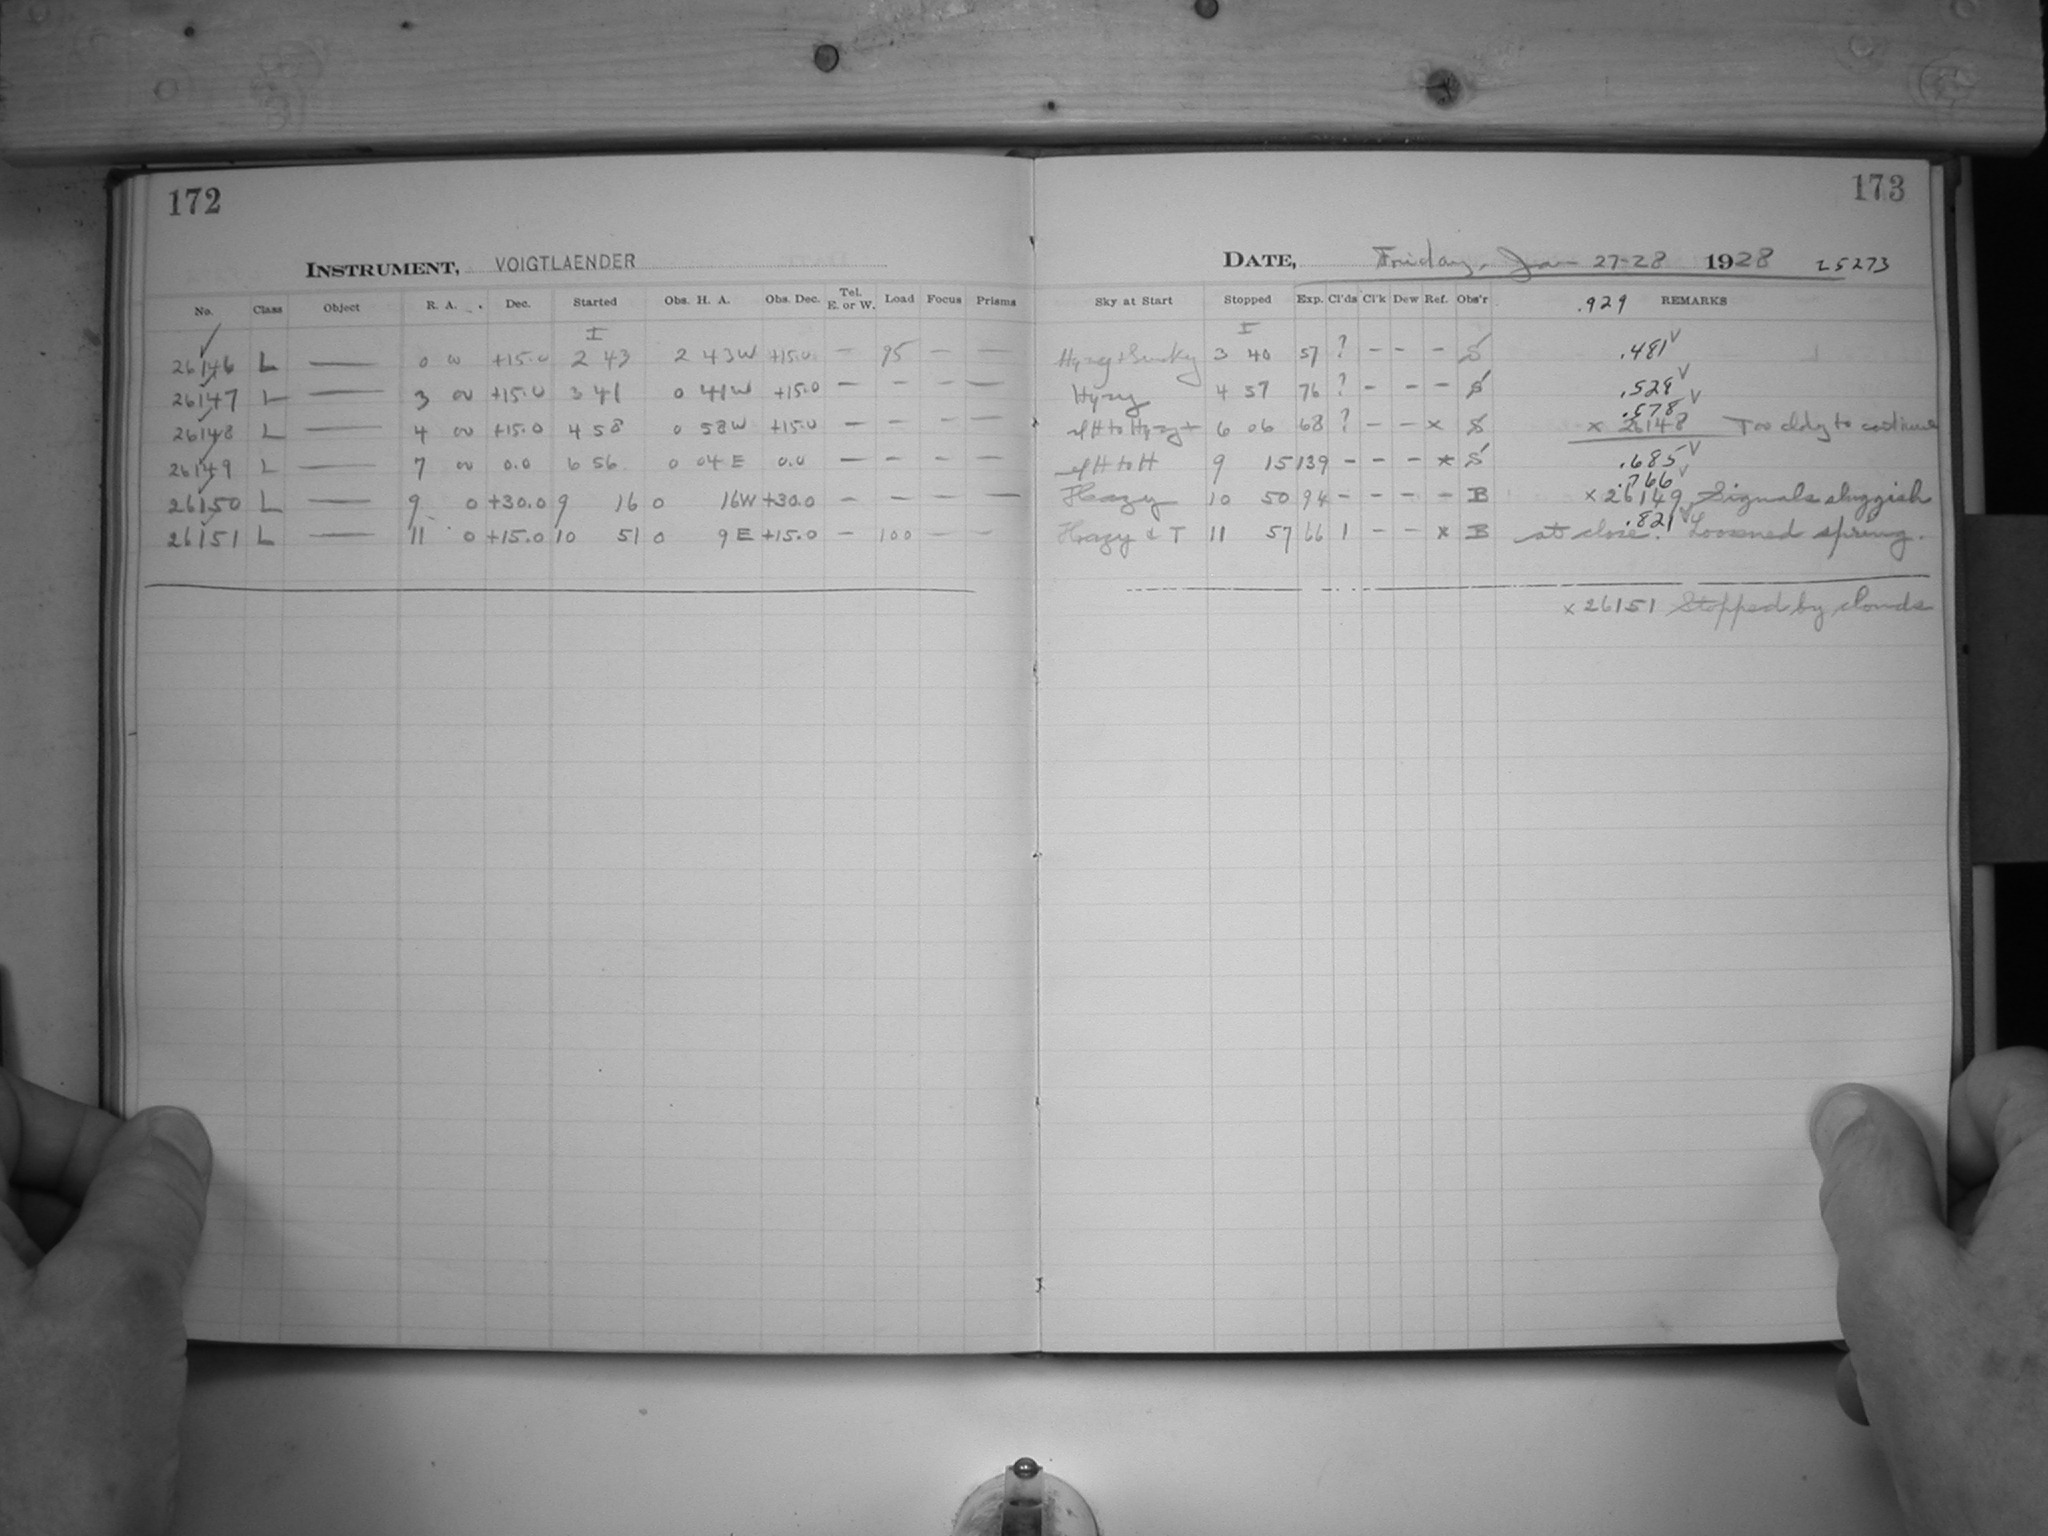 172
INSTRUMENT, VOIGTLAENDER
No. Class Object R. A. Dec. Started Obs. H. A. Obs. Dec. Tel. E. or W. Load Focus Prisms
I
26146 L — 0 00 +15.0 2 43 2 43W +15.0 — 95 — —
26147 L — 3 00 +15.0 3 41 0 41W +15.0 — — — —
26148 L — 4 00 +15.0 4 58 0 58W +15.0 — — — —
26149 L — 7 00 0.0 6 56 0 04E 0.0 — — — —
26150 L — 9 0 +30.0 9 16 0 16W +30.0 — — — —
26151 L — 11 0 +15.0 10 51 0 9E +15.0 — 100 — —
173
DATE, Friday, Jan 27-28 1928 25273
Sky at Start Stopped Exp. Cl'ds Cl'k Dew Ref. Obs'r .929 REMARKS
I
3 40 57 ? — — — S .481 V
Hazy 4 57 76 ? — — — S .529 V
.578 V
6 06 68 ? — — x S x 26148 Too cldy to continue
9 15 139 — — — x S .685 V
.766 V
Hazy 10 50 94 — — — — B x 26149 Signals sluggish
.821 V
Hazy & T 11 57 66 1 — — x B at close. Loosened spring.
x 26151 Stopped by clouds